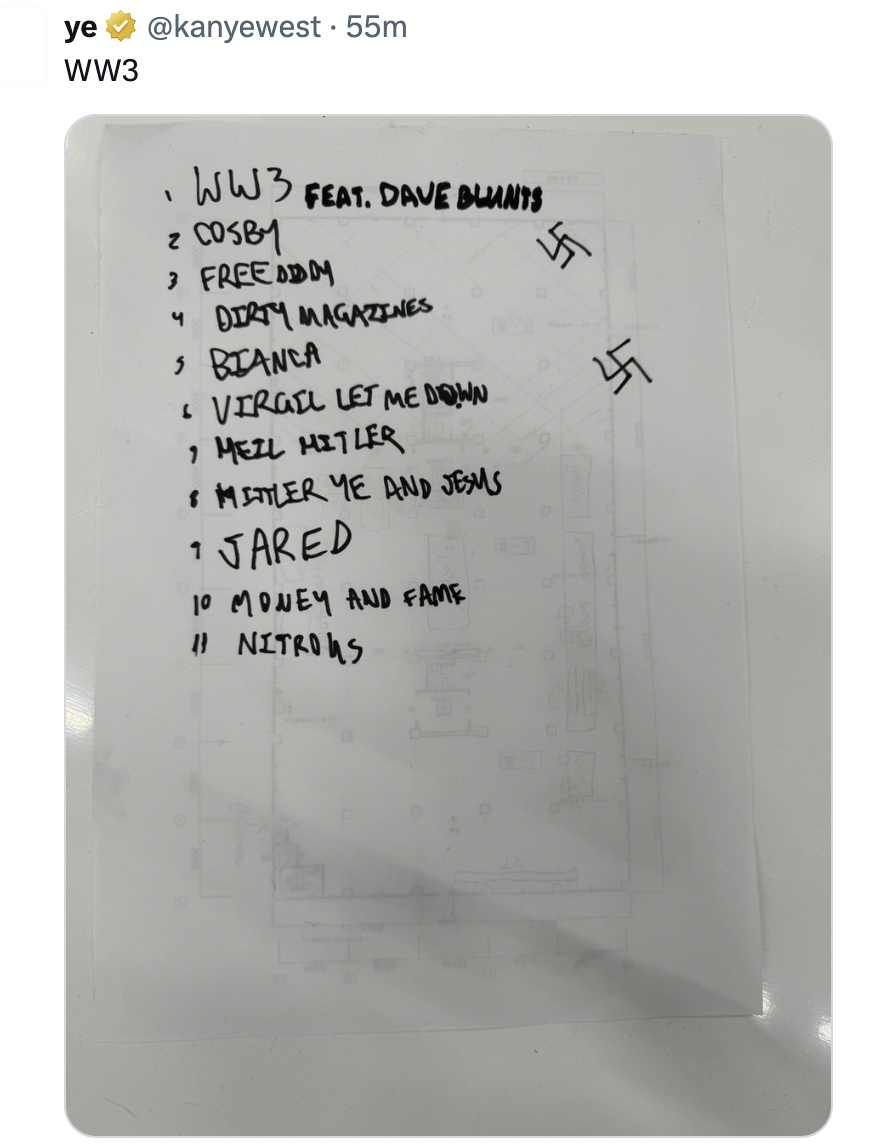 ye @kanyewest · 55m
WW3
1 WW3 FEAT. DAVE BLUNTS
2 COSBY
3 FREE DIDDY
4 DIRTY MAGAZINES
5 BIANCA
6 VIRGIL LET ME DOWN
7 HEIL HITLER
8 HITLER YE AND JESUS
9 JARED
10 MONEY AND FAME
11 NITROUS